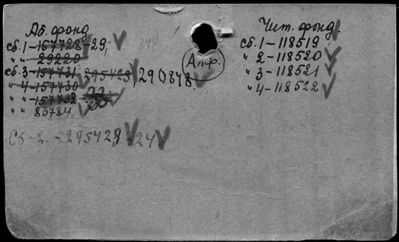 Аб. фонд
сб. 1 - 157728 - 29,
29220
сб. 3 - 157731, 295423, 290848
" 4 - 157730
" " - 157732 -
" " 83784
Сб - 2 - 295423 - 24
Чит. фонд
сб. 1 - 118519
" 2 - 118520
" 3 - 118521
" 4 - 118522